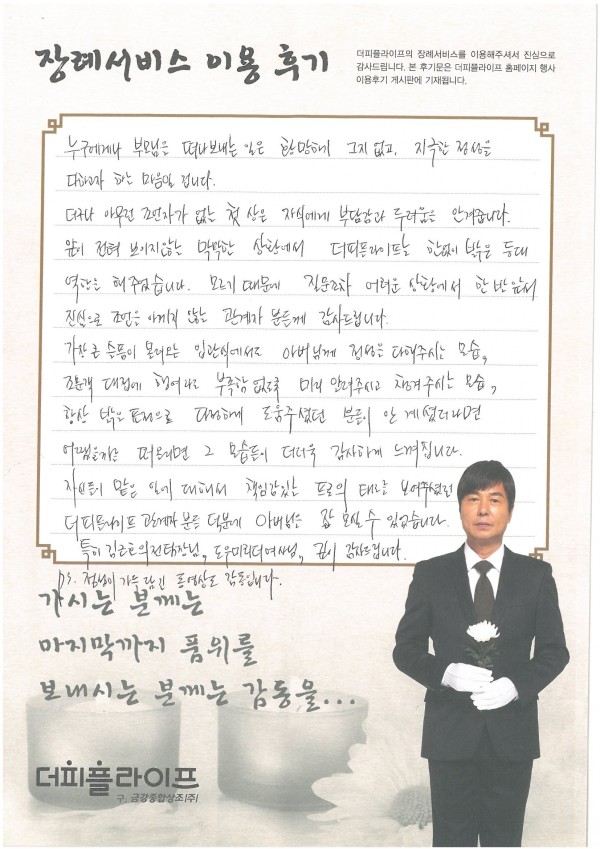 장례서비스 이용 후기
더피플라이프의 장례서비스를 이용해주셔서 진심으로
감사드립니다. 본 후기문은 더피플라이프 홈페이지 행사
이용후기 게시판에 기재됩니다.
누구에게나 부모님을 떠나보내는 일은 한만해 그지 없고, 지극한 정성을
다하고자 하는 마음일 겁니다.
더구나 아무런 조언자가 없는 첫 상은 자식에게 부담감과 두려움을 안겨줍니다.
앞이 전혀 보이지않는 막막한 상황에서 더피플라이프는 한없이 밝은 등대
역할을 해주었습니다. 모르기 때문에 질문조차 어려운 상황에서 한 발 앞서
진심으로 조언을 아끼지 않는 관계자 분들께 감사드립니다.
가장 큰 슬픔이 몰려오는 입관식에서도 아버님께 정성을 다해주시는 모습,
조문객 대접에 행여라도 부족함 없도록 미리 알려주시고 챙겨주시는 모습,
항상 밝은 표정으로 다정하게 도움주셨던 분들이 안 계셨더라면
어땠을까를 떠올리면 그 모습들이 더더욱 감사하게 느껴집니다.
자신들이 맡은 일에 대해서 책임감있는 프로의 태도를 보여주셨던
더피플라이프 관계자 분들 덕분에 아버님을 잘 모실 수 있었습니다.
특히 의전팀장님, 도우미리더여사님, 깊이 감사드립니다.
P.S. 정성이 가득 담긴 동영상도 감동입니다.
가시는 분께는
마지막까지 품위를
보내시는 분께는 감동을...
더피플라이프
구. 금강종합상조(주)